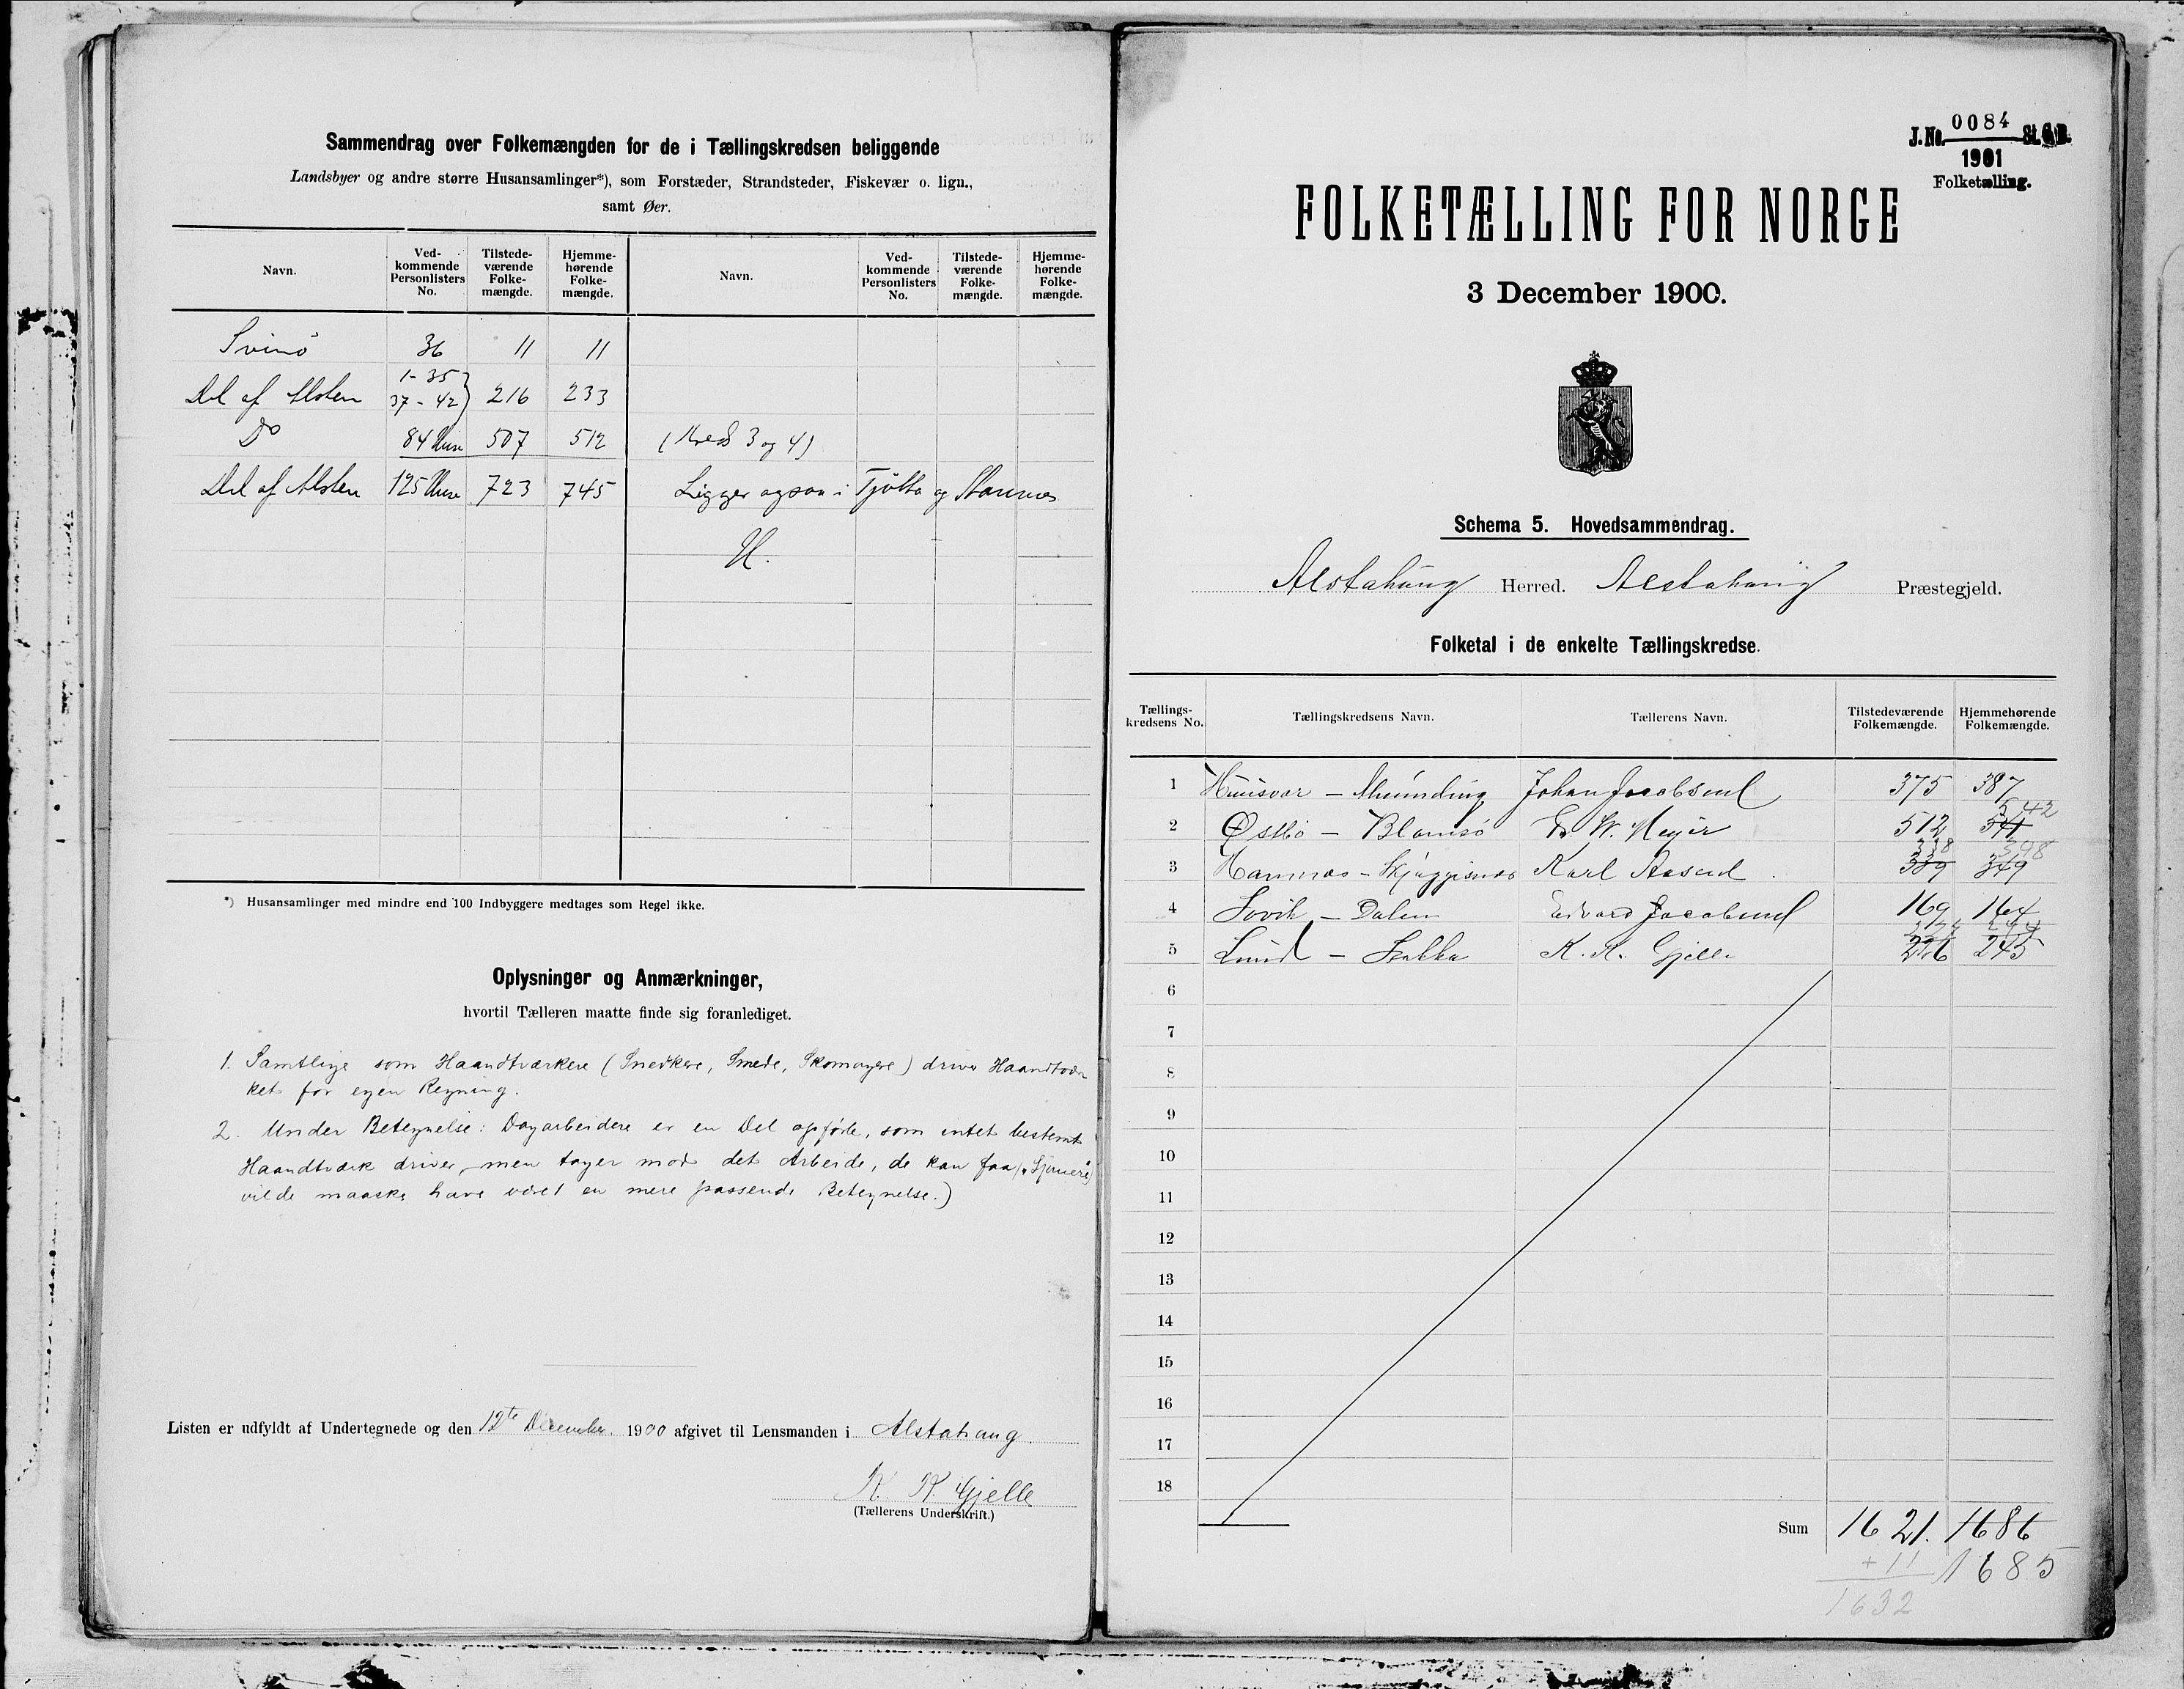 Sammendrag over Folkemængden for de i Tællingskredsen beliggende
Landsbyer og andre større Husansamlinger*), som Forstæder, Strandsteder, Fiskevær o. lign.,
samt Øer.
Navn. Ved-kommende Personlisters No. Tilstede-værende Folke-mængde. Hjemme-hørende Folke-mængde. Navn. Ved-kommende Personlisters No. Tilstede-værende Folke-mængde. Hjemme-hørende Folke-mængde.
Svinö 36 11 11
1-35
Del af Alsten 37-42 216 233
Do 84 Huse 507 512 (Kreds 3 og 4)
Del af Alsten 125 Huse 723 745 Ligger ogsaa i Tjötta og Stamnes
*) Husansamlinger med mindre end 100 Indbyggere medtages som Regel ikke.
Oplysninger og Anmærkninger,
hvortil Tælleren maatte finde sig foranlediget.
1. Samtlige som Haandtværkere (Snedkere, Smede, Skomagere) driver Haandtvær
ket for egen Regning.
2. Under Betegnelse: Dagarbeidere er en Del opførte, som intet bestemt
Haandtværk driver, men tager mod det Arbeide, de kan faa
vilde maaske have været en mere passende Betegnelse.)
Listen er udfyldt af Undertegnede og den 12te December 1900 afgivet til Lensmanden i Alstahaug
K. K. Gjelle
(Tællerens Underskrift.)
J. No. 0084 St. C. B.
1901
Folketælling.
FOLKETÆLLING FOR NORGE
3 December 1900.
Schema 5. Hovedsammendrag.
Alstahaug Herred. Alstahaug Præstegjeld.
Folketal i de enkelte Tællingskredse.
Tællings-kredsens No. Tællingskredsens Navn. Tællerens Navn. Tilstedeværende Folkemængde. Hjemmehørende Folkemængde.
1 Johan Jacobsen 375 387
542
2 Østbø - Blomsö W. Meyer 512 541
338
3 Karl Aasen 339 349
4 Sovik - Dalen Edvard Jacobsen 169 164
5 Lund - Stokka K. K. Gjelle 226 245
6
7
8
9
10
11
12
13
14
15
16
17
18
Sum 1621. 1686
+11 1685
1632